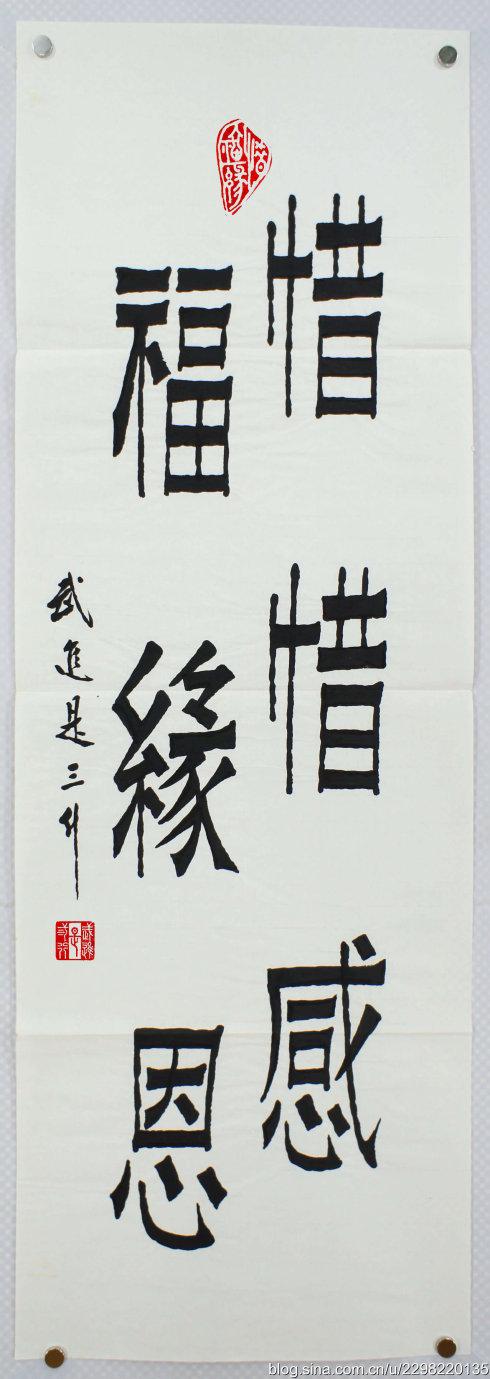 惜福
惜緣
感恩
武進是三
惜福緣
blog.sina.com.cn/u/2298220135